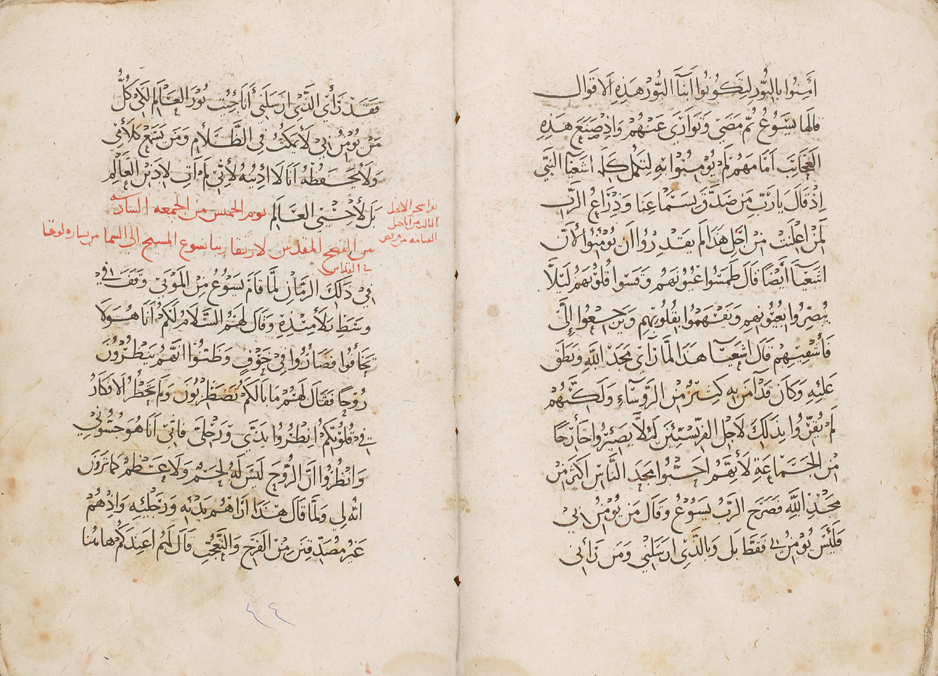 أمنوا بالنور لتكونوا أبنآ النور هذه الاقوال
قالها يسوع ثم مضى وتوارى عنهم واذ صنع هذه
العجائب أمامهم لم يومنوا به لتكمل كلمة اشعيا التي
اذ قال يارب من صدق بسماعنا وذراع الرب
لمن اعلنت من اجل هذا لم يقدروا ان يومنوا لان
اشعيا أيضا قال طمسوا عيونهم وقسوا قلوبهم ليلا
يبصروا بعيونهم ويفهموا بقلوبهم ويرجعوا إلي
فأشفيهم قال اشعيا هذا لما رأى مجد الله ونطق
عليه وكان قد آمن به كثير من الروسآء ولكنهم
لم يقروا بذلك لاجل الفريسيين لئلا يصيروا خارجا
من الجماعة لانهم احبوا مجد الناس اكثر من
مجد الله فصرح الرب يسوع وقال من يومن بي
فليس يومن بي فقط بل وبالذي ارسلني ومن رآني
فقد رأى الذي ارسلني أنا جيت نور العالم لكي كل
من يومن بي لا يمكث في الظلام ومن يسمع كلامي
ولا يحفظه أنا لا ادينه لأني لم آت لادين العالم
بل لأحيي العالم يوم الخميس من الجمعه السادسه
من الفصح المقدس لارتفاع ربنا يسوع المسيح إلى السما من بشاره لوقا
في ذلك الزمان لما قام يسوع من الموتى وقف في
وسط تلاميذه وقال لهم السلام لكم أنا هو لا
تخافوا فصاروا في خوف وظنوا انهم ينظرون
روحا فقال لهم ما بالكم تضطربون ولم تخطر الافكار
في قلوبكم انظروا يدي ورجلي فاني أنا هو جسوني
وانظروا ان الروح ليس له لحم ولا عظم كما ترون
انه لي ولما قال هذا اراهم يديه ورجليه واذ هم
غير مصدقين من الفرح والتعجب قال لهم اعندكم هاهنا
٤٤